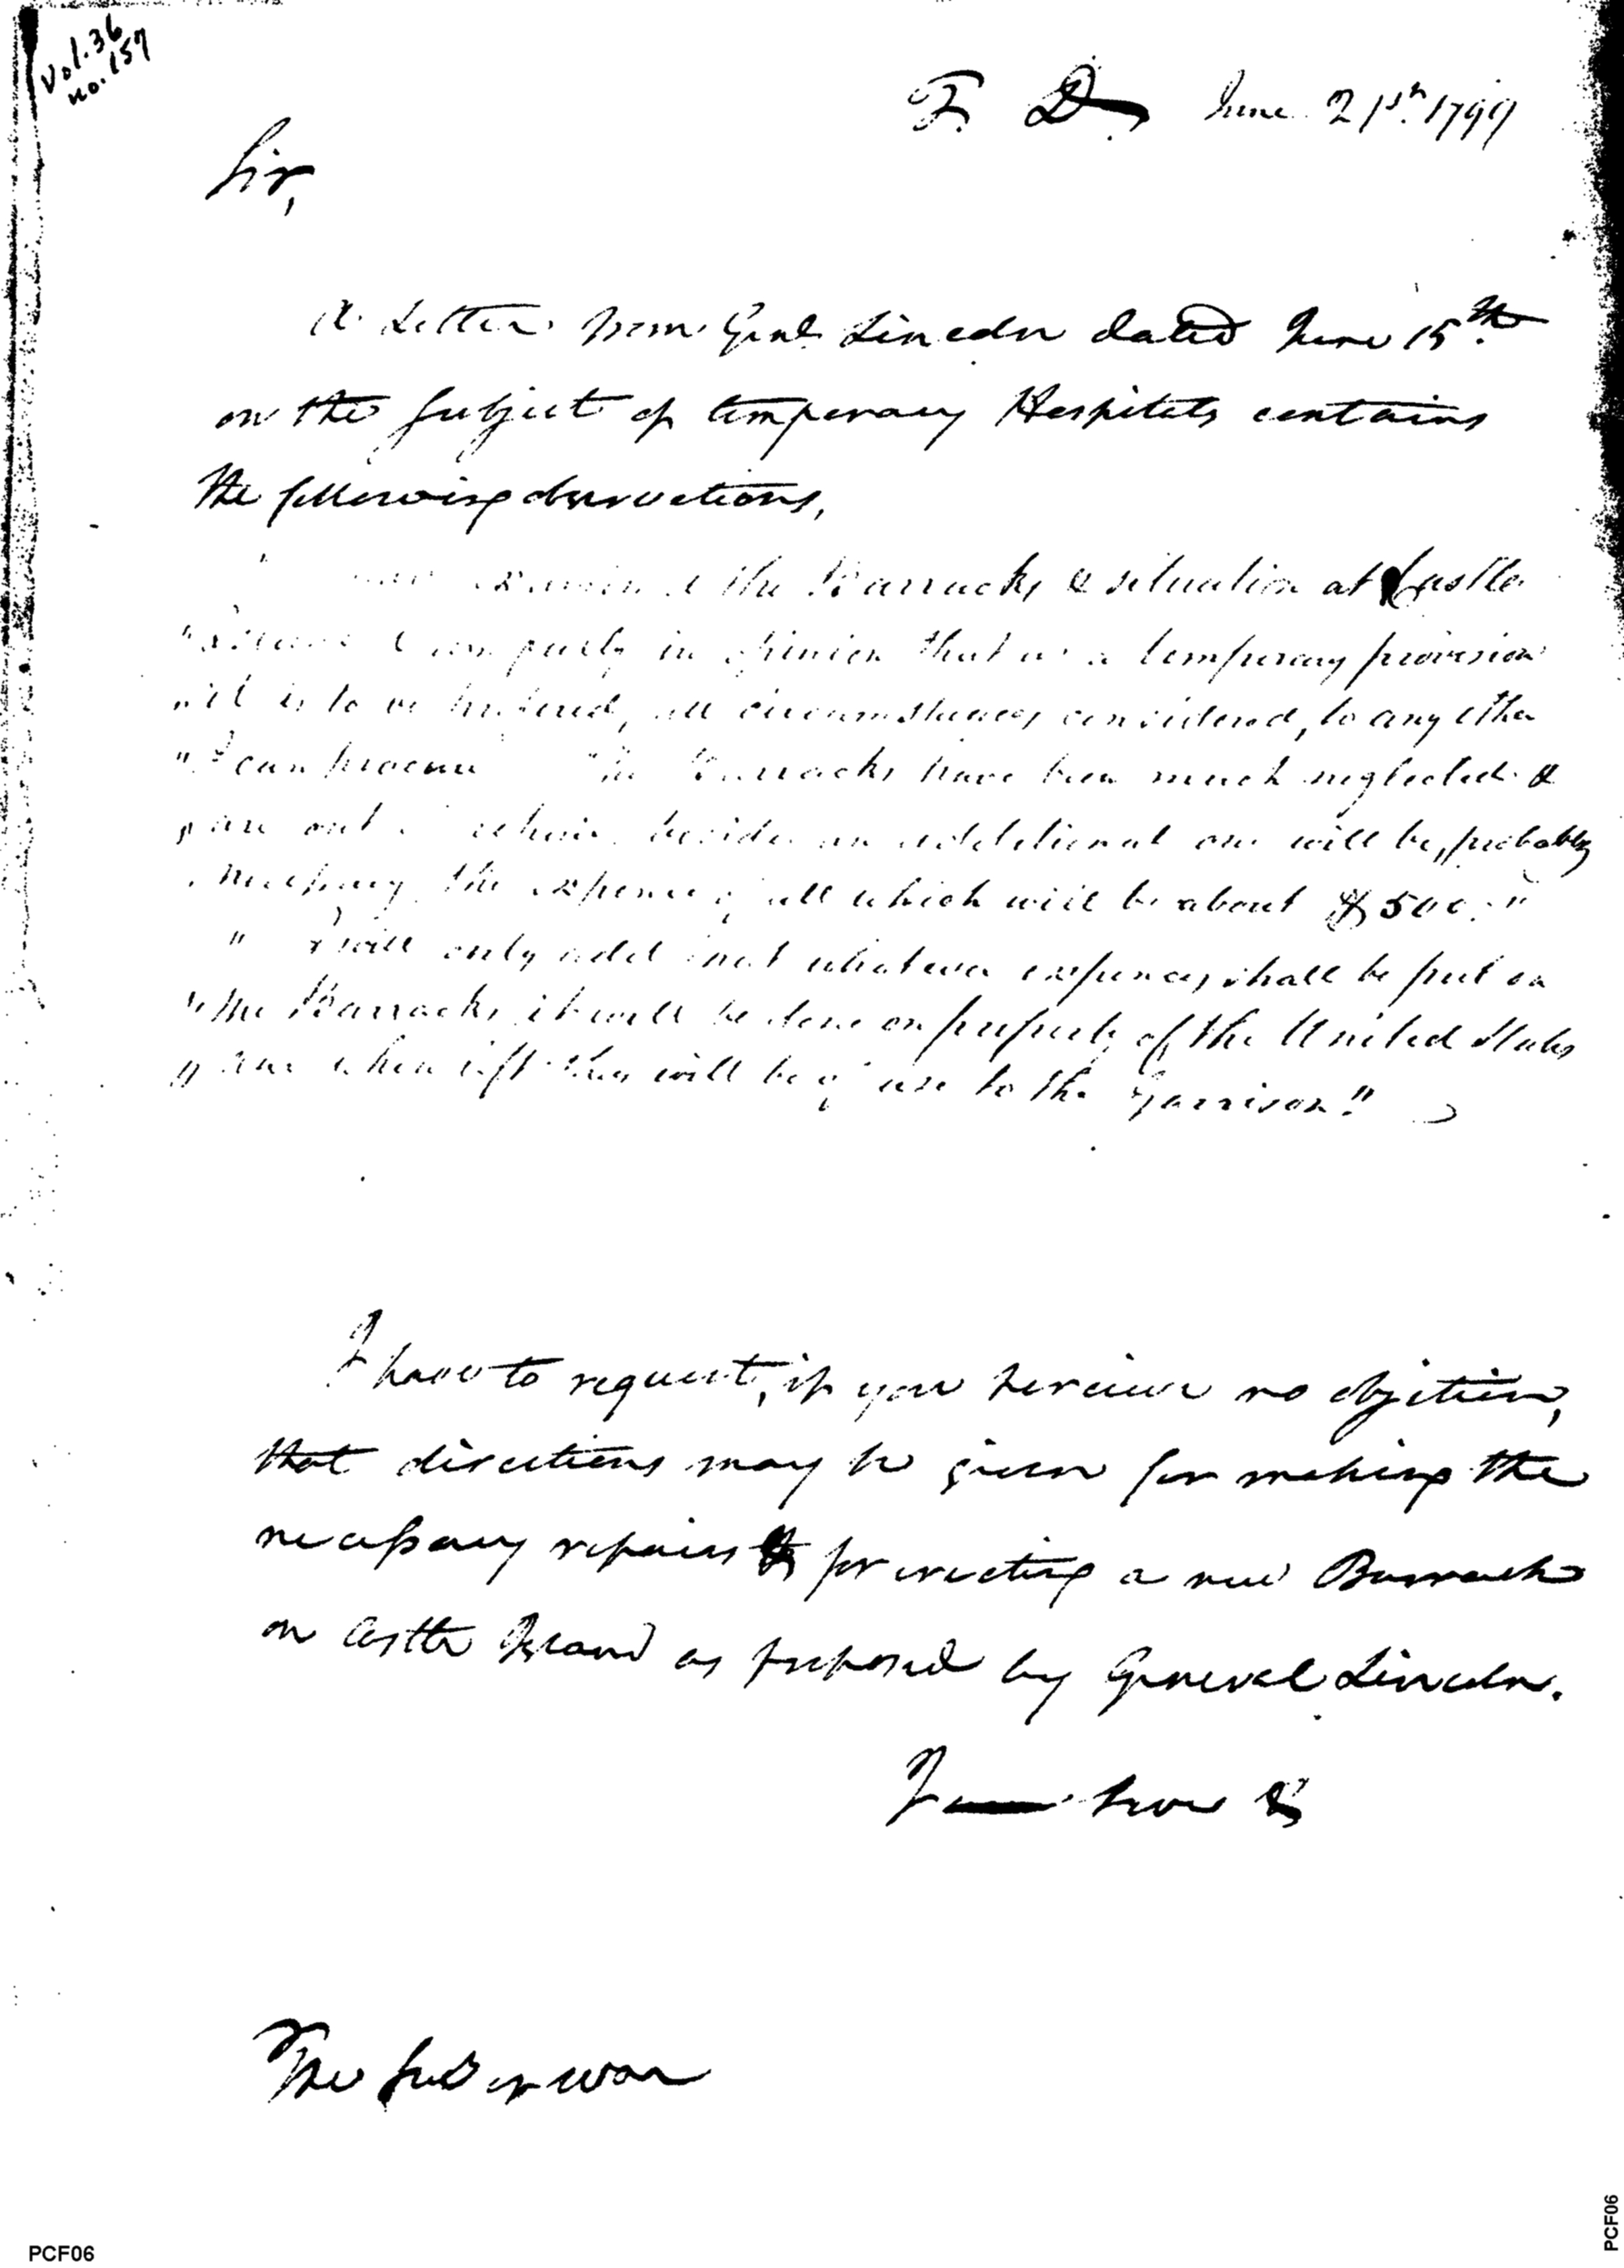 Vol. 36
no. 157
T. D. June 21st. 1799
Sir,
A Letter from Genl. Lincoln dated June 15th.
on the subject of temporary Hospitals contains
the following observations,
the Barracks & situation at Castle
" & am fully in opinion that as a temporary provision
" it is to be prefered, all circumstances considered, to any other
" I can procure The Barracks have been much neglected &
" are out besides an additional one will be, probably
necessary the expence of all which will be about $500."
" I will only add that whatever expences shall be put on
" the Barracks, it will be done on property of the United States
" & when left they will be of use to the Garrison."
I have to request, if you perceive no objection,
that directions may be given for making the
necessary repairs & for erecting a new Barrack
on Castle Island as proposed by General Lincoln.
The Sec of War
PCF06
PCF06